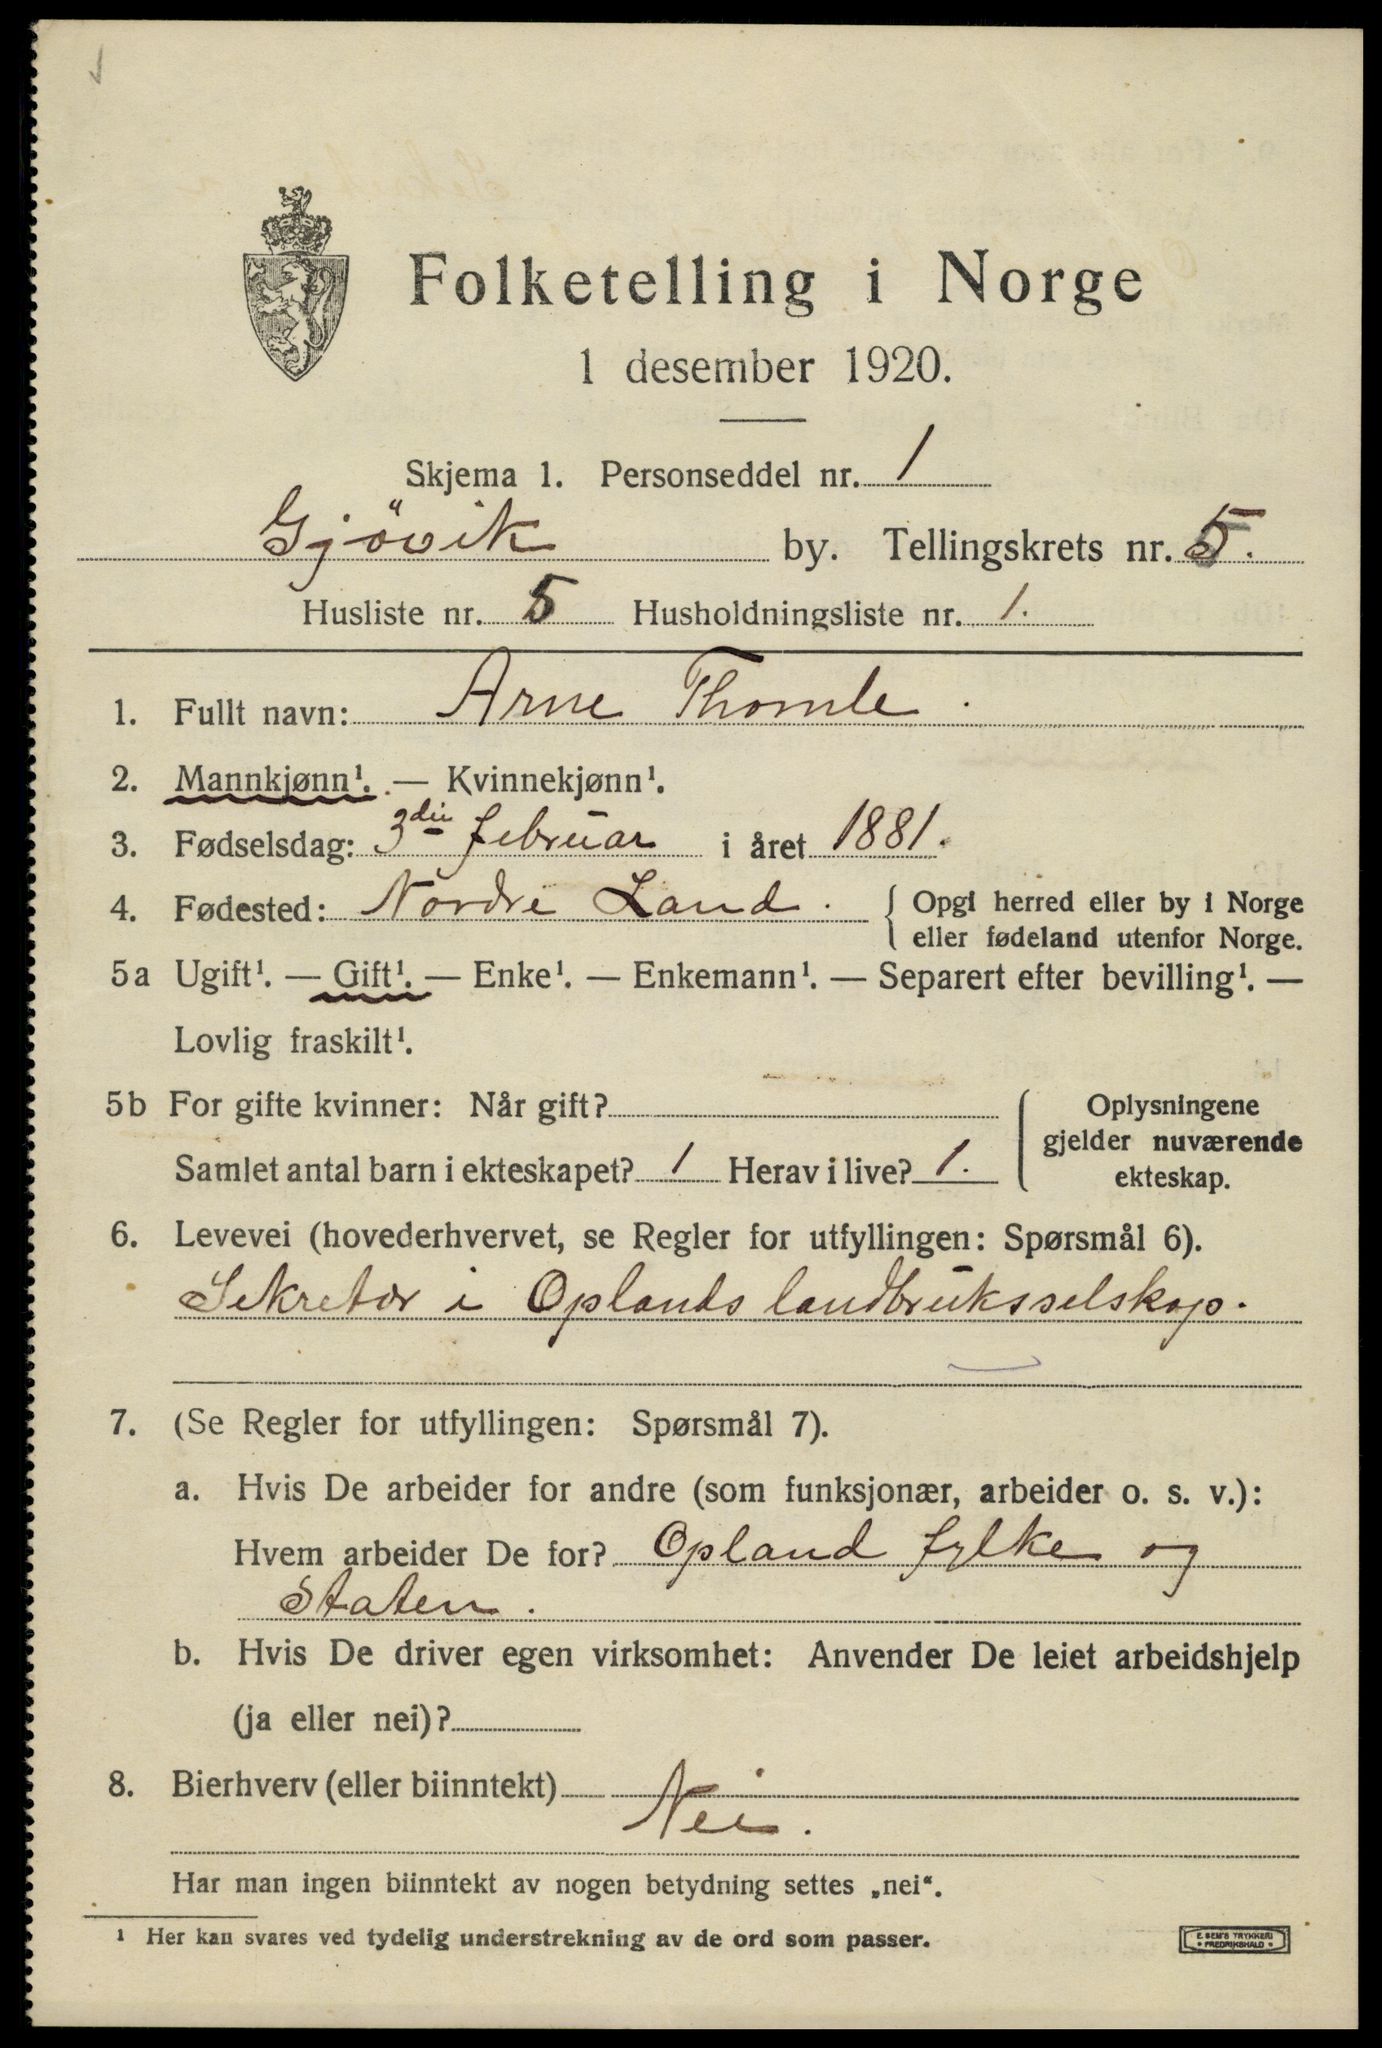 Folketelling i Norge
1 desember 1920.
Skjema 1. Personseddel nr. 1
Gjövik by. Tellingskrets nr. 5.
Husliste nr. 5 Husholdningsliste nr. 1.
1. Fullt navn: Arne Thomle.
2. Mannkjønn¹. — Kvinnekjønn¹.
3. Fødselsdag: 3die februar i året 1881.
4. Fødested: Nordre Land. { Opgi herred eller by i Norge
eller fødeland utenfor Norge.
5a Ugift¹. — Gift¹. — Enke¹. — Enkemann¹. — Separert efter bevilling¹. —
Lovlig fraskilt¹.
5b For gifte kvinner: Når gift?
Samlet antal barn i ekteskapet? 1 Herav i live? 1.
{ Oplysningene
gjelder nuværende
ekteskap.
6. Levevei (hovederhvervet, se Regler for utfyllingen: Spørsmål 6).
Sekretær i Oplands landbruksselskap.
7. (Se Regler for utfyllingen: Spørsmål 7).
a. Hvis De arbeider for andre (som funksjonær, arbeider o. s. v.):
Hvem arbeider De for? Opland fylke og
Staten.
b. Hvis De driver egen virksomhet: Anvender De leiet arbeidshjelp
(ja eller nei)?
8. Bierhverv (eller biinntekt)
Nei.
Har man ingen biinntekt av nogen betydning settes „nei“.
¹ Her kan svares ved tydelig understrekning av de ord som passer.
E. SEM'S TRYKKERI
• FREDRIKSHALD •